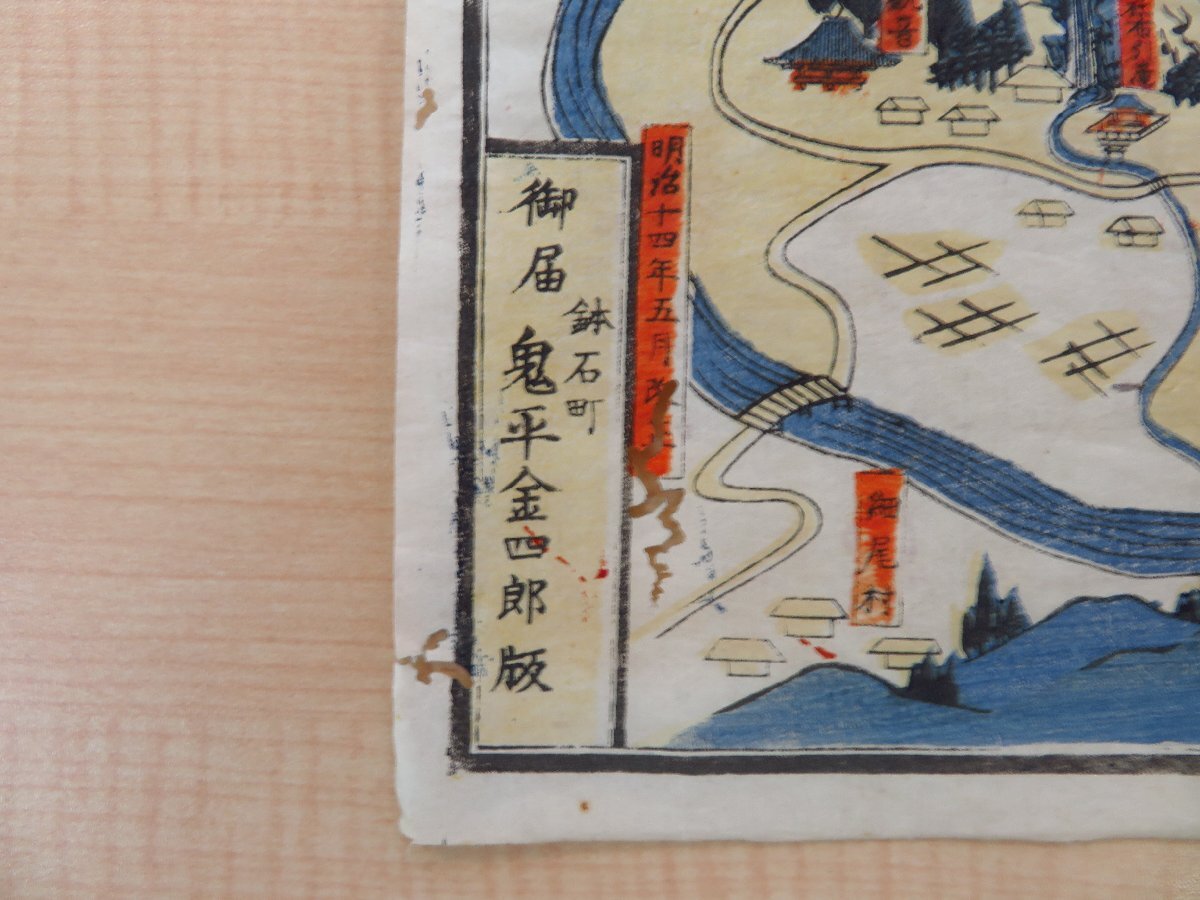 観音
明治十四年五月改正
御届
鉢石町
鬼平金四郎版
細尾村